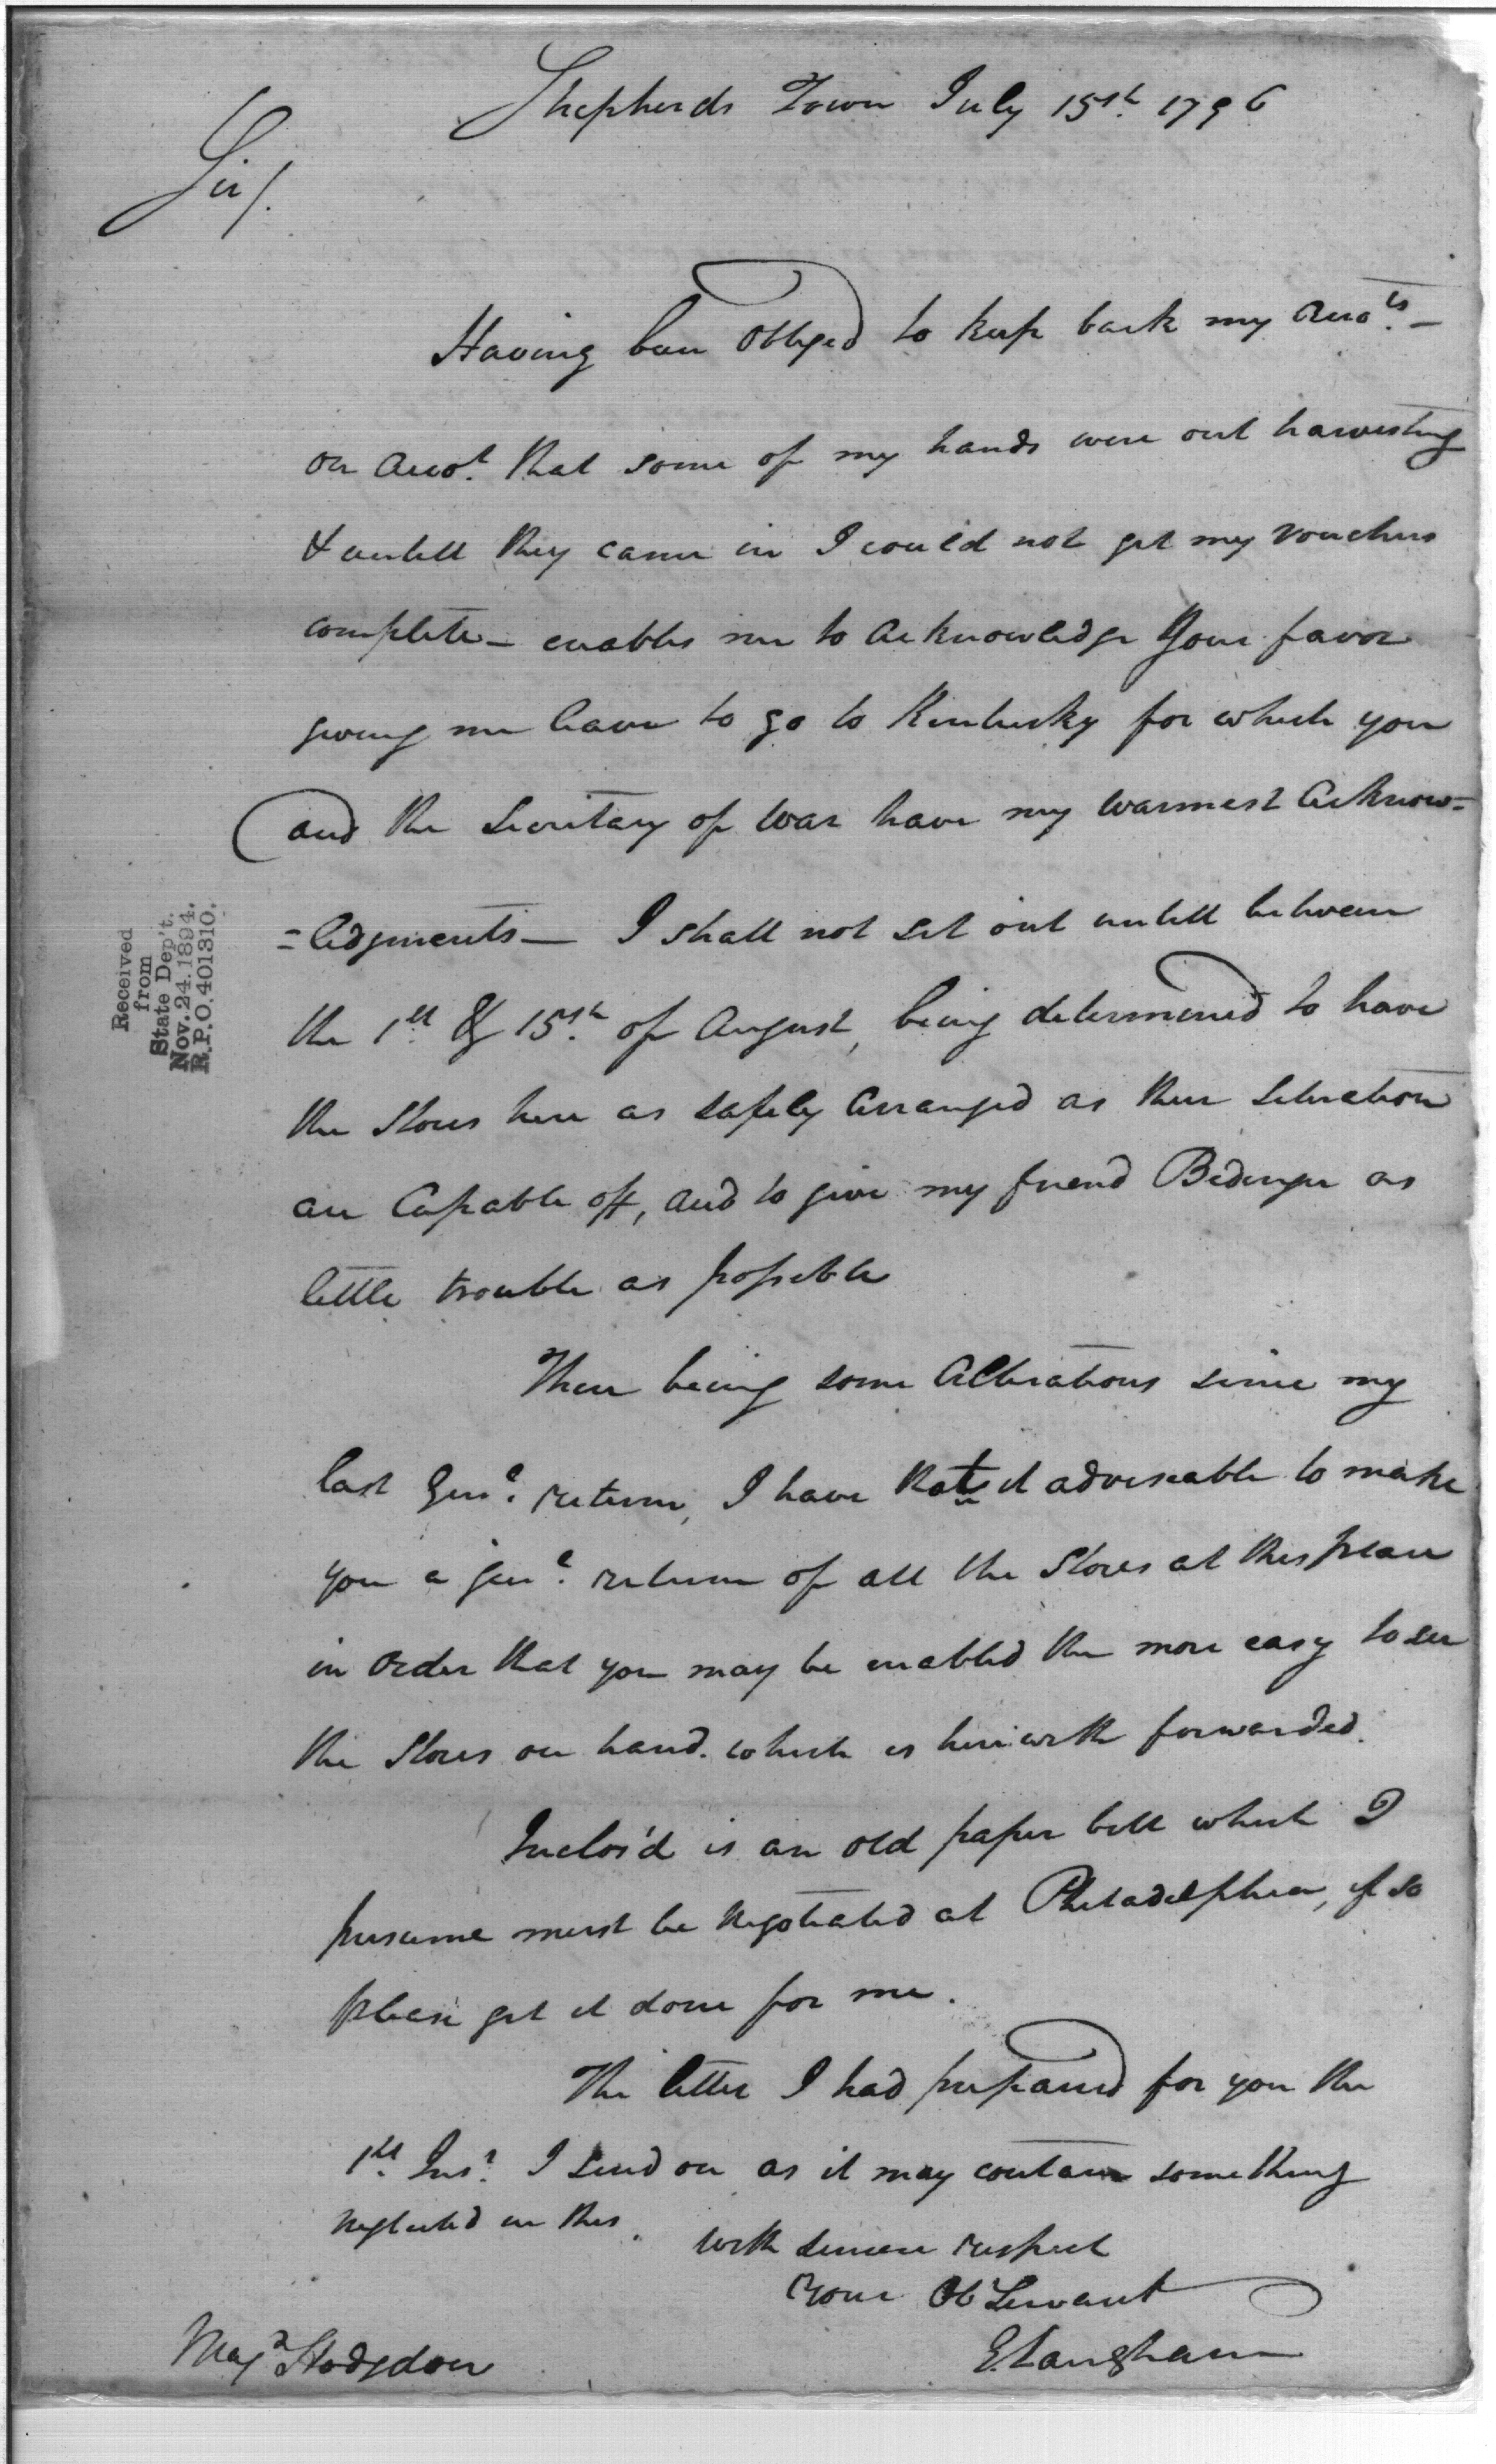 Shepherds Town July 15th. 1796
Sir/.
Having been Obliged to keep back my Accots. —
on Accot. that some of my hands were out harvesting
& untill they came in I could not get my vouchers
complete — enables me to acknowledge Your favor
giving me leave to go to Kentucky for which you
and the Secretary of War have my warmest Acknow=
=ledgments — I shall not set out untill between
the 1st. & 15th. of August, being determined to have
the Stores here as safely arranged as their Situation
are Capable off, and to give my friend Bedinger as
little trouble as possible
There being some Alterations since my
last Genl. return, I have thot it adviseable to make
you a genl. return of all the Stores at this place
in Order that you may be enabled the more easy to see
the Stores on hand. which is herewith forwarded.
Inclos'd is an old paper bill which I
presume must be Negotiated at Philadelphia, if so
please get it done for me.
The letter I had prepared for you the
1st. Inst. I send on as it may contain something
neglected in this.
With sincere respect
Your Ob Servant
E Langham
Majr Hodgdon
Received
from
State Dep't.
Nov. 24. 1894.
R.P.O. 401310.